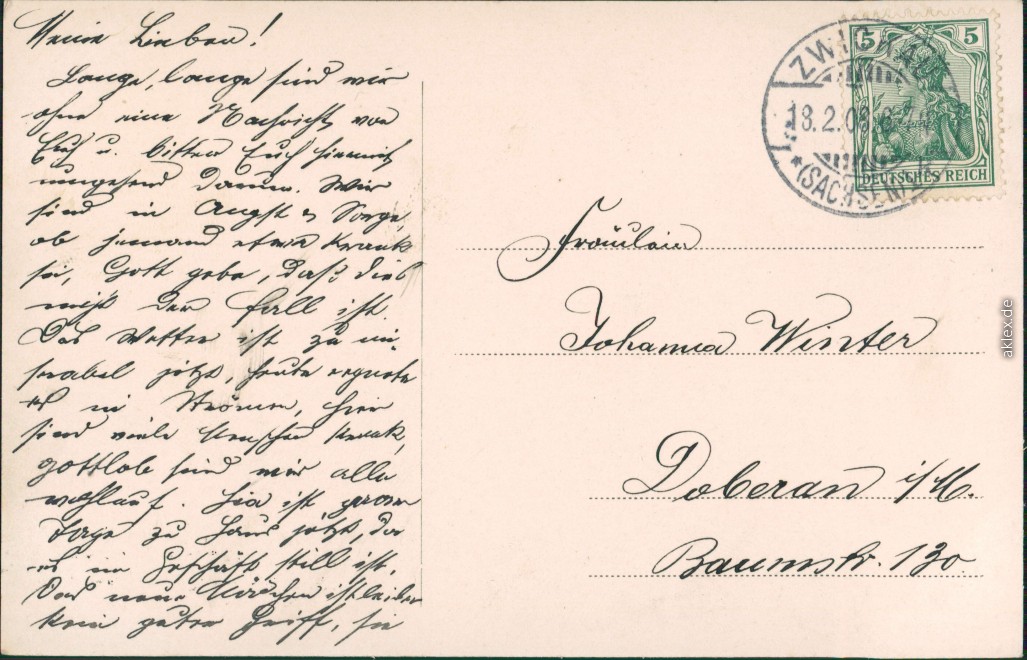 Meine Lieben!
Lange, lange sind wir
ohne eine Nachricht von
Euch u. bitten Euch hiermit
umgehend darum. Wir
sind in Angst & Sorge,
ob jemand etwa krank
sei, Gott gebe, daß dies
nicht der Fall ist.
Das Wetter ist zu mi-
serabel jetzt, heute regnete
es in Strömen, hier
sind viele Menschen krank,
gottlob sind wir alle
wohlauf. ist
Tage zu Haus jetzt, da
es im Geschäft still ist.
Das neue ist leider
kein guter Griff, sie
ZWICKAU
18.2.08
*(SACHSEN)
5 5
DEUTSCHES REICH
Fräulein
Johanna Winter
Doberan i/M.
Baumstr. 130
aklex.de